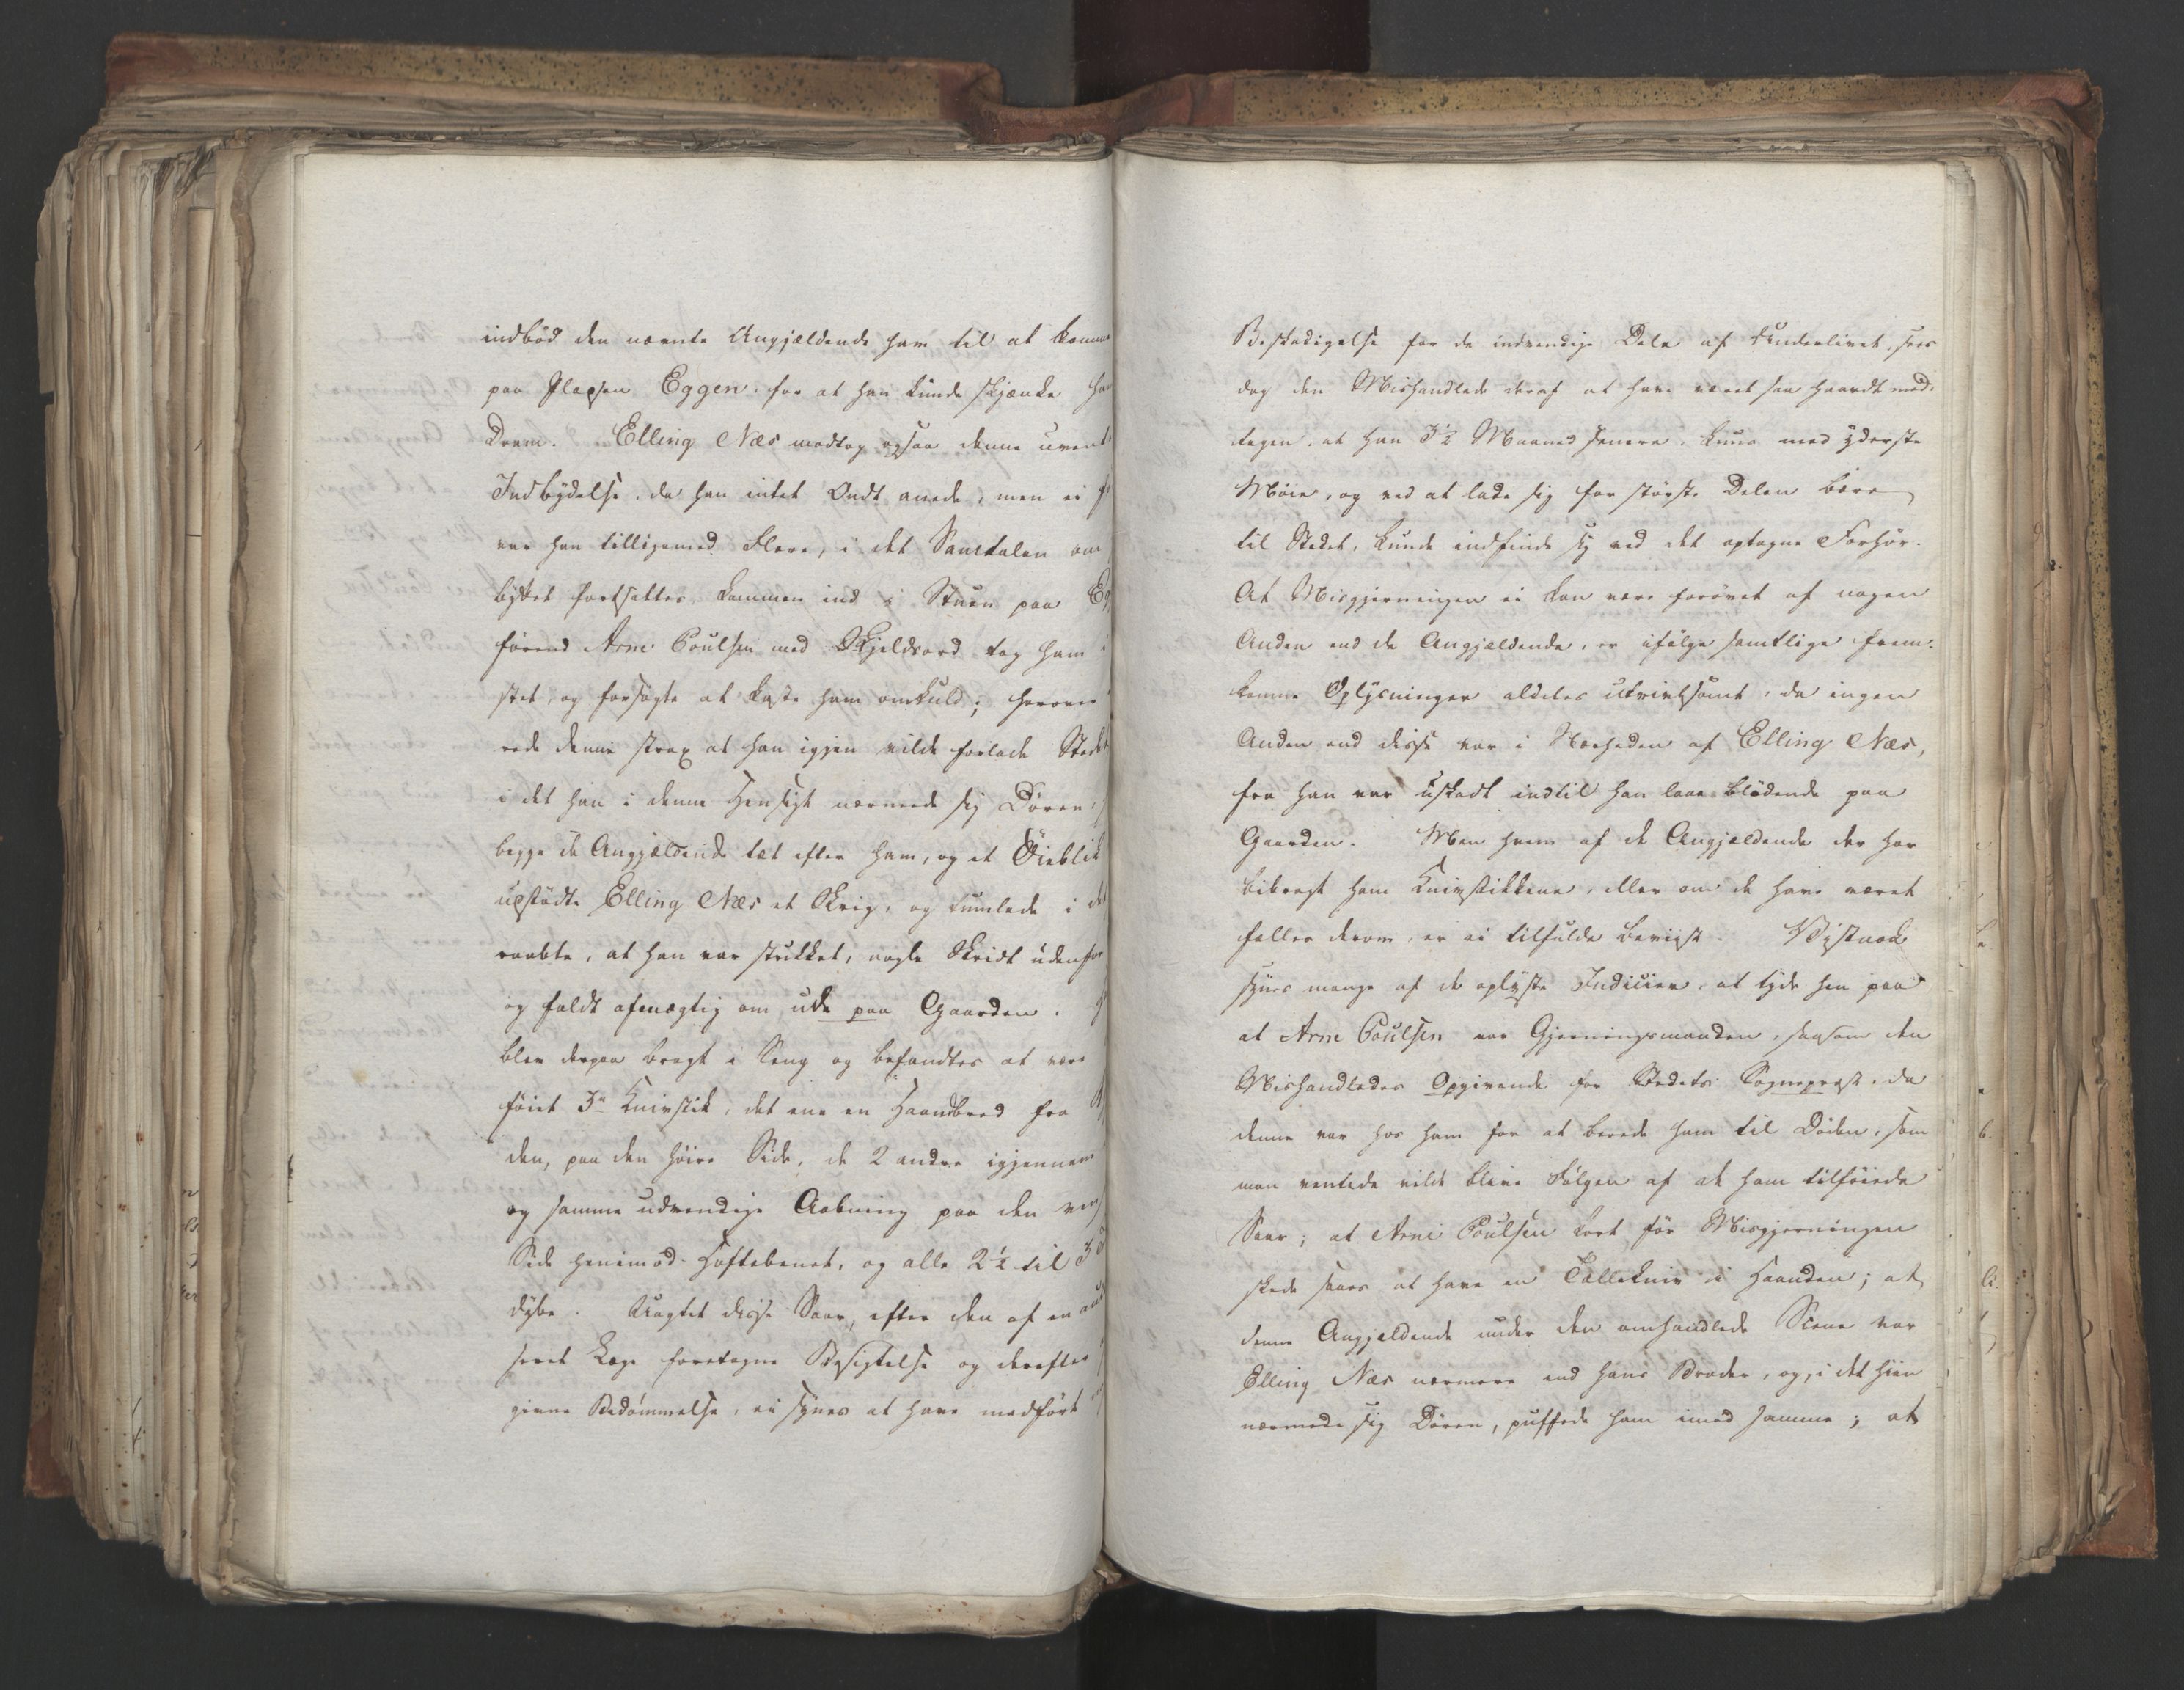 indbød den nævnte Angjældende ham til at komme
paa Pladsen Eggen, for at han kunde skjænke ham
Dram. Elling Næs modtog ogsaa denne uvent
Indbydelse, da han intet Ondt anede, men ei f
var han tilligemed Flere, i det Samtalen om
byttet fortsattes, kommen ind i Stuen paa Eg
førend Arne Poulsen med Skjeldsord tog ham i
stet, og forsøgte at kaste ham omkuld; herover
rede denne strax at han igjen vilde forlade Stedet
i det han i denne Hensigt nærmede sig Døren,
begge de Angjældende tæt efter ham, og et Øieblik
udstødte Elling Næs et Skrig, og tumlede i det
raabte, at han var stukket, nogle Skridt udenfor
og faldt afmægtig om ude paa Gaarden.
blev derpaa bragt i Seng og befandtes at være
føiet 3de Knivstik, det ene en Haandbred fra
den, paa den høire Side, de 2 andre igjennem
og samme udvendige Aabning paa den ven
Side henimod Hoftebenet, og alle 2½ til 3
dybe. Uagtet disse Saar, efter den af en
seret Læge foretagne Besigtelse og derefter
givne Bedømmelse, ei synes at have medført
Beskadigelse for de indvendige Dele af Underlivet, sees
dog den Mishandlede deraf at have været saa haardt med-
tagen, at han 3½ Maaned senere, kun med yderste
Møie, og ved at lade sig for største Delen bære
til Stedet, kunde indfinde sig ved det optagne Forhør.
At Misgjerningen ei kan være forøvet af nogen
Anden end de Angjældende, er ifølge samtlige frem-
komne Oplysninger aldeles utvivlsomt, da ingen
Anden end disse var i Nærheden af Elling Næs,
fra han var uskadt indtil han laae blødende paa
Gaarden. Men hvem af de Angjældende der har
bibragt ham Knivstikkene, eller om de have været
fælles derom, er ei tilfulde beviist. Vistnok
synes mange af de oplyste Indicier, at tyde hen paa
at Arne Poulsen var Gjerningsmanden, saasom den
Mishandledes Opgivende for Stedets Sognepræst, da
denne var hos ham for at berede ham til Døden, som
man ventede vilde blive Følgen af de ham tilføiede
Saar; at Arne Poulsen kort før Misgjerningen
skede saaes at have en Tollekniv i Haanden; at
denne Angjældende under den omhandlede Scene var
Elling Næs nærmere end hans Broder, og, i det hiin
nærmede sig Døren, puffede ham imod samme; at